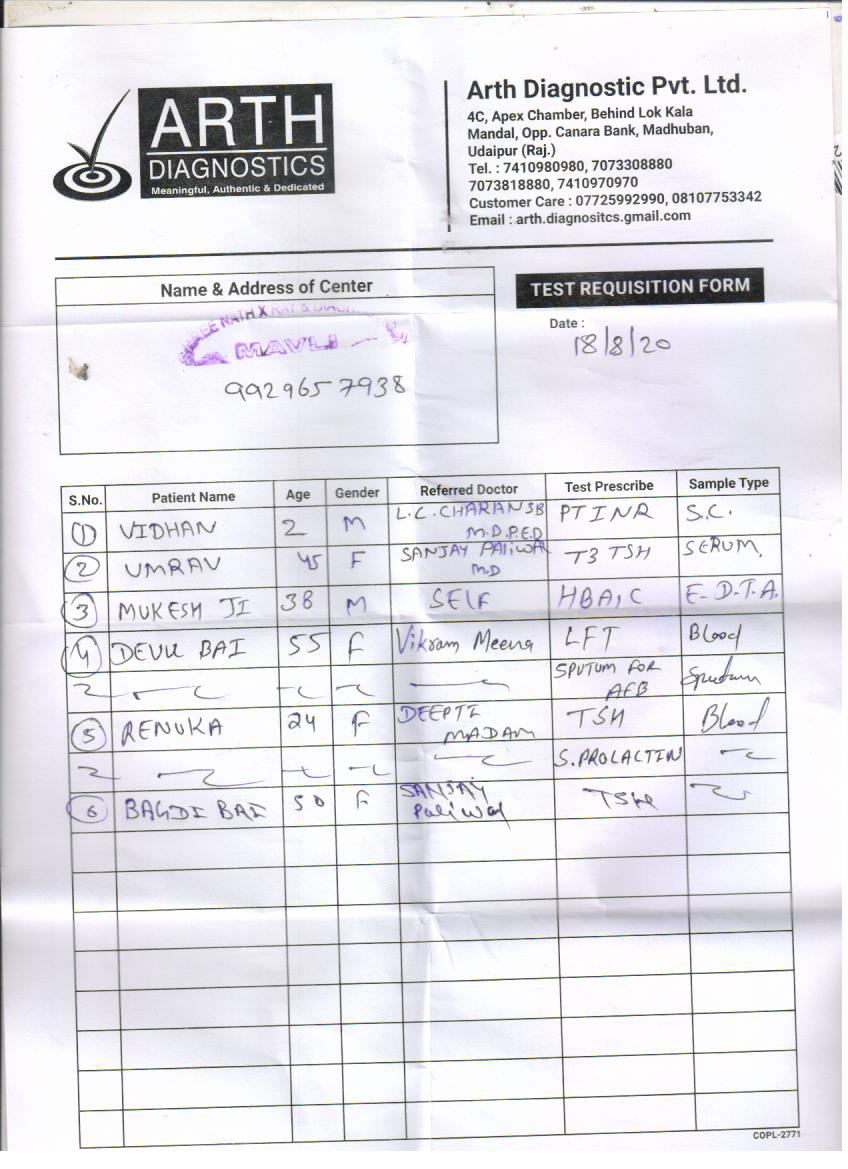 ARTH
DIAGNOSTICS
Meaningful, Authentic & Dedicated
Arth Diagnostic Pvt. Ltd.
4C, Apex Chamber, Behind Lok Kala
Mandal, Opp. Canara Bank, Madhuban,
Udaipur (Raj.)
Tel. : 7410980980, 7073308880
7073818880, 7410970970
Customer Care : 07725992990, 08107753342
Email : arth.diagnositcs.gmail.com
Name & Address of Center
NATH X RAY &
MAVLI
9929657938
TEST REQUISITION FORM
Date :
18/8/20
S.No. Patient Name Age Gender Referred Doctor Test Prescribe Sample Type
1 VIDHAN 2 M L.C. CHARAN SB M.D.PED PT INR S.C.
2 UMRAV 45 F SANJAY PALIWAL M.D T3 TSH SERUM
3 MUKESH JI 38 M SELF HBA1C E.D.T.A.
4 DEVU BAI 55 F Vikram Meena LFT Blood
SPUTUM FOR AFB Sputum
5 RENUKA 24 F DEEPTI MADAM TSH Blood
S.PROLACTIN
6 BAGDI BAI 50 F SANJAY Paliwal TSH
COPL-2771